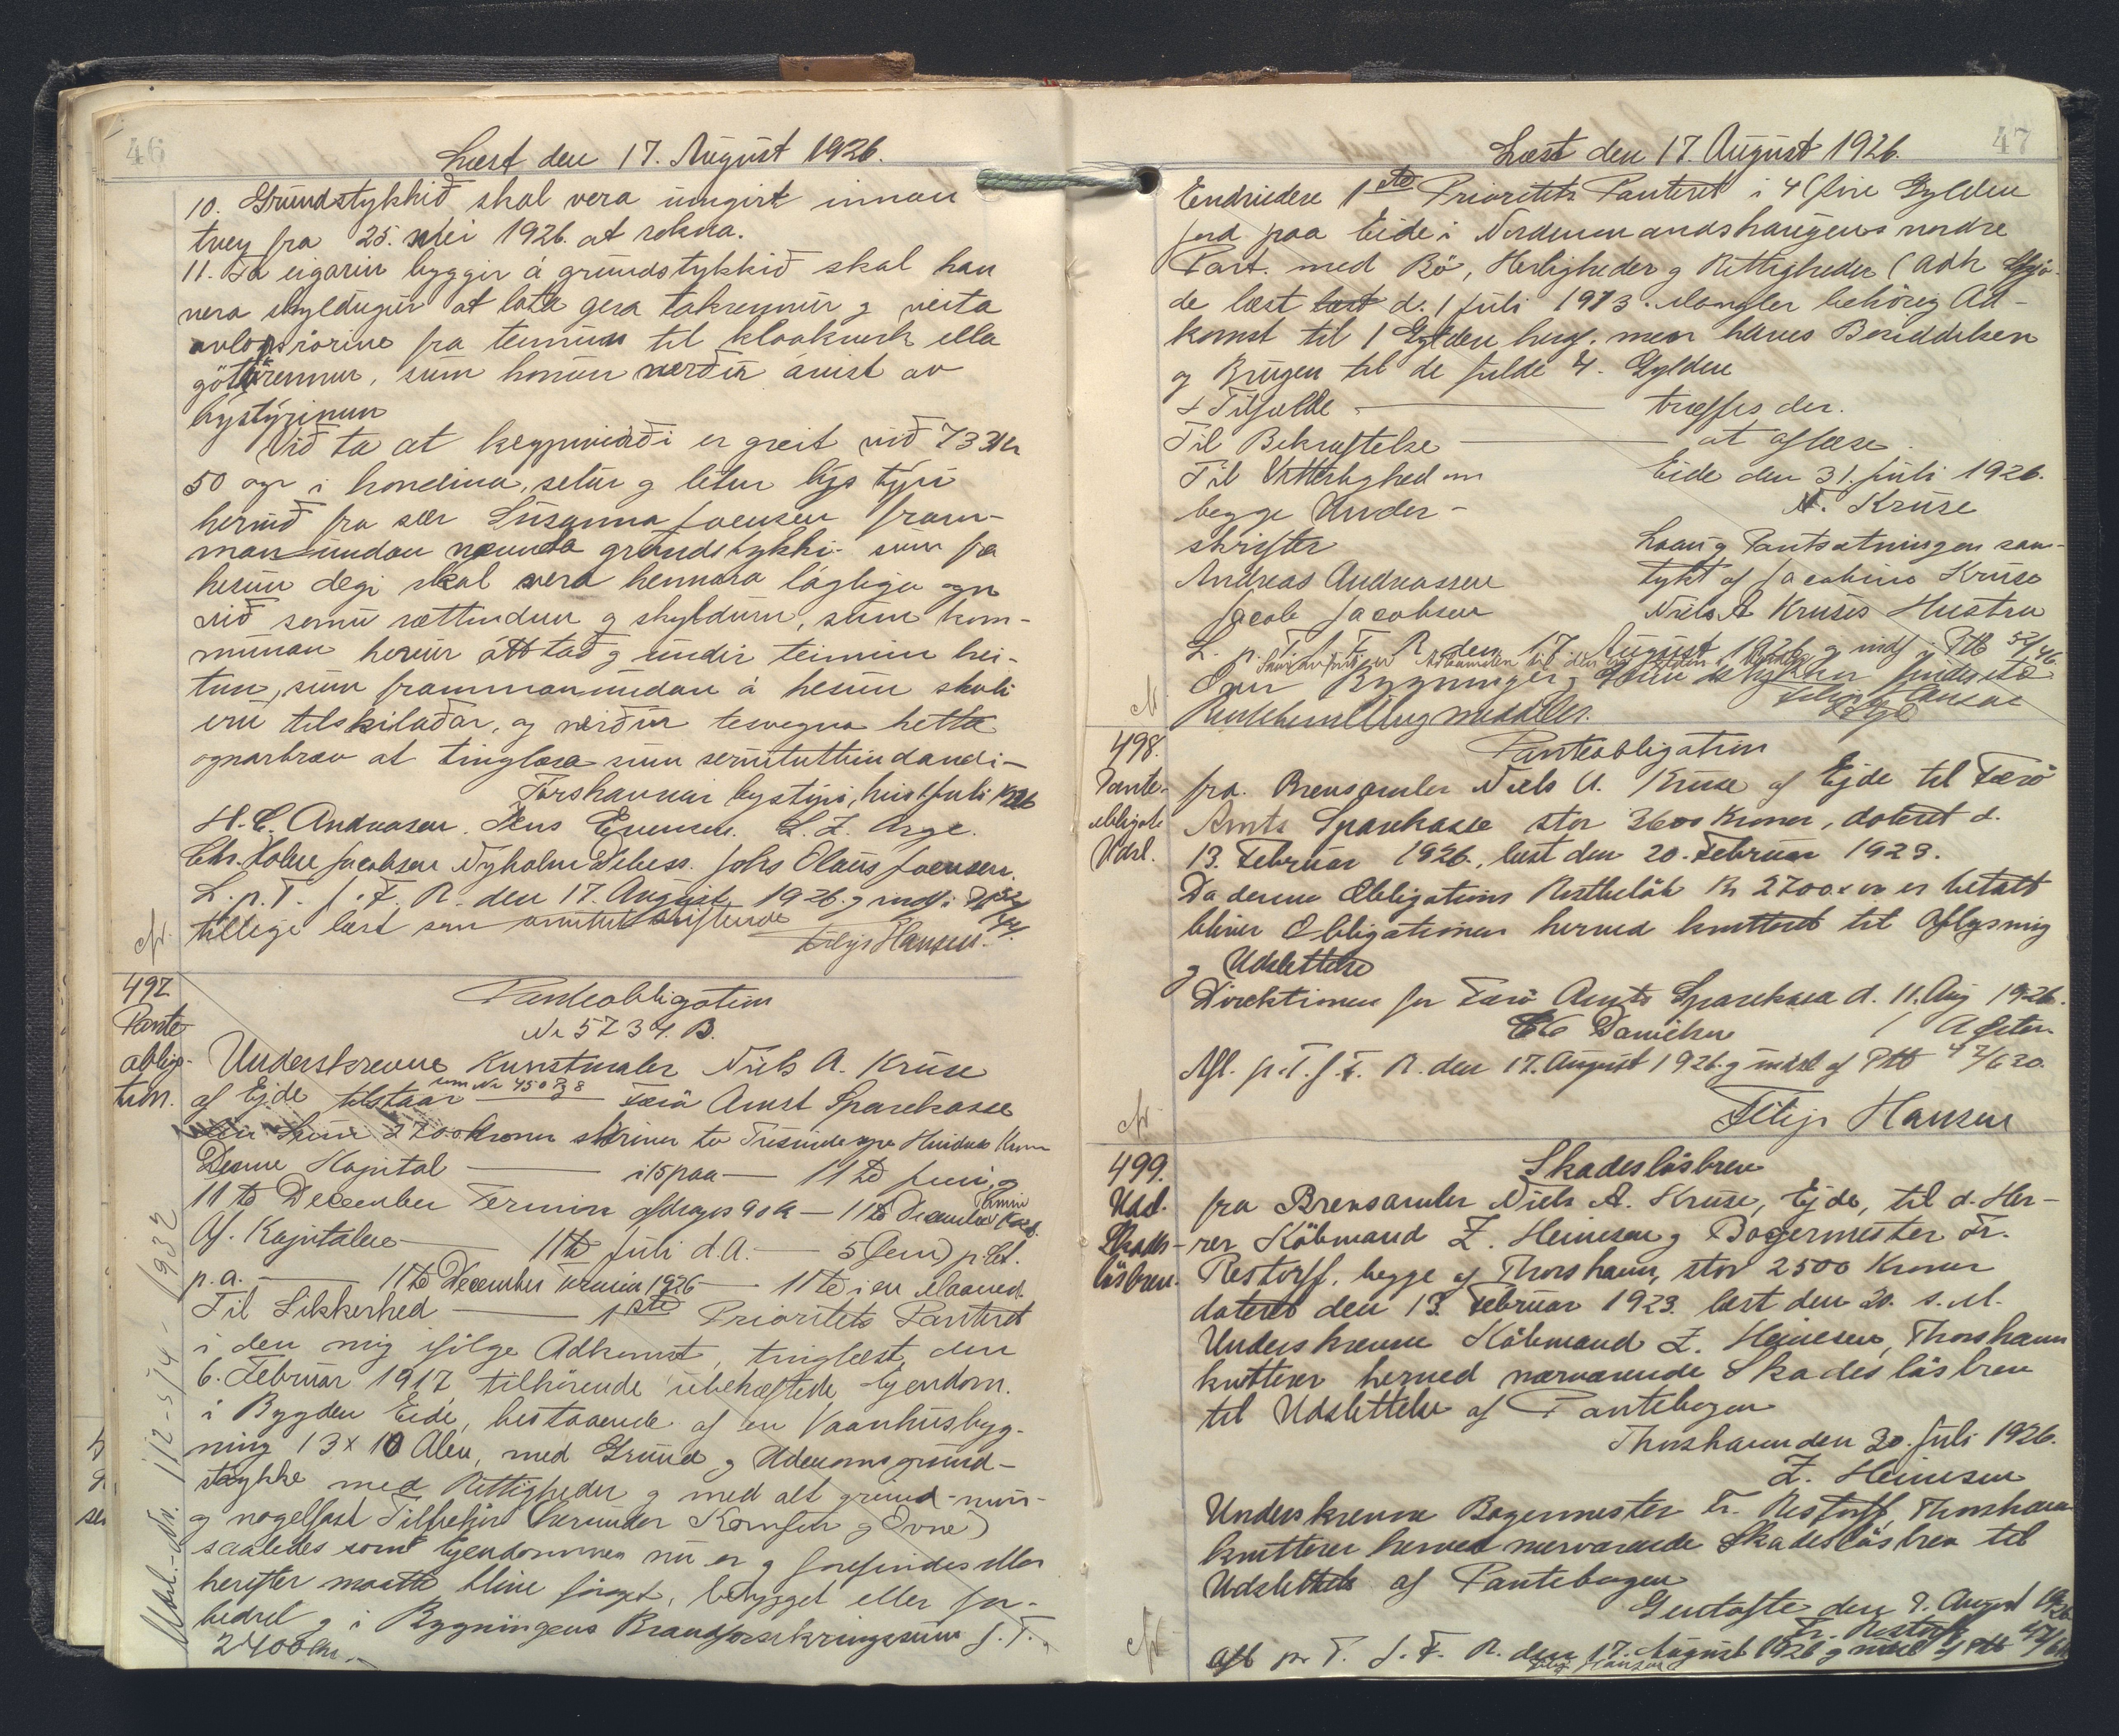 46
Læst den 17. August 1926.
10. Grundstykkið skal vera umgirt innan
trey fra 25. mei 1926. at rokna.
11. Tá eigarin byggir á grundstykkið skal han
vera skyldugur at lata gera takrennur og veita
avlopsrörini fra teimum til kloakverk ella
göturennur, sum honum verður ávist av
býstýrinum
Við ta at keypinvirði er greit við 733 Kr
50 oyr i hondina, setur og letur býstýri
hervið fra sær Susanna Joensen fram-
manundan nevnda grundstykki sum fra
hesum degi skal vera hennara lógliga ogn
við somu rættindum og skyldum, sum kom-
munan hevur átt tað og undir teimum trei-
tum, sum frammanundan á hesum skuli
eru tilskilaðar, og verður tesvegna hetta
ognarbræv at tinglesa sum servituttindandi-
Torshavnar bystýri, hin 1 Juli 1926
H. C. Andreasen. Jens Evensen. L. Z. Arge.
Chr. Holm Jacobsen Nyholm Debess. Johs Olaus Joensen.
L. p. T. f. F. R. den 17. August 1926. og indf. i Ptb 52/44.
tillige læst som servitutstiftende
Filip Hansen.
497.
Pante-
obliga-
tion.
Panteobligation
No 5734. B.
Underskrevne Kunstmaler Niels A. Kruse
af Ejde tilstaar um No 450 98 Færö Amst Sparekasse
den Sum 2700 Kroner skriver to Tusinde syv Hundrede Kroner
Denne Kapital — i 15 paa — 11te Juni og
11te December Termin afdrages 90 Kr — 11te December Termin
Af Kapitalen — 11te Juli d.A. — 5 (fem) p.Ct.
p. a. — 11te December Termin 1926 — 11te i en Maaned.
Til Sikkerhed — 1ste Prioritets Panteret
i den mig ifölge Adkomst, tinglæst den
6. Februar 1917 tilhörende ubehæftede Ejendom.
i Bygden Eide, bestaaende af en Vaanhusbyg-
ning 13 x 10 Alen, med Grund og Udenomsgrund-
stykke med Rettigheder og med alt grund- mur-
og nagelfast Tilbehör (herunder Komfur og Ovne)
saaledes som Ejendommen nu er og forefindes eller
herefter maatte blive foröget, bebygget eller for-
bedret og i Bygningens Brandforsikringssum f. T.
2400 Kr.
Udsl.-Adv. 112-5/4-1932
47
Læst den 17. August 1926.
Endvidere 1ste Prioritets Panteret i 4 (fire Gylden
Jord paa Eide i Nordmandshaugens nordre
Part. med Bö, Herligheder og Rettigheder (Adk Skjö-
de læst læst d. 1 Juli 1913. Mangler behörig Ad-
komst til 1 Gylden heraf. men haves Besiddelsen
og Brugen til de fulde 4. Gylden
I Tilfælde — træffes der.
Til Bekræftelse — at aflæse.
Til Vitterlighed om
begge Under-
skrifter
Andreas Andreassen
Jacob Jacobsen
Eide den 31. Juli 1926.
N. Kruse
Laan og Pantsætningen sam-
tykt af Jacobine Kruse
Niels A Kruses Hustru
L. p. T. f. F. R. den 17. August 1926 og indf i Ptb 52/46.
Over Bygninger og Grund stykker findes ei
Realbehandling meddeles.
Filip Hansen
498.
Pante-
obligat.
Udsl.
Panteobligation
fra Brevsamler Niels A. Kruse af Ejde til Færö
Amts Sparekasse stor 3600 Kroner, dateret d.
13. Februar 1926., læst den 20. Februar 1923.
Da denne Obligations Restbelöb Kr 2700 er er betalt
bliver Obligationen herved kvitteret til Aflysning
og Udslettelse
Direktionen for Færö Amts Sparekasse d. 11. Aug 1926.
Danielsen
Afl. p. T. f. F. R. den 17. August 1926. og udsl af Ptb 47/620.
Filip Hansen
499.
Uds.
Skades-
lösbrev.
Skadeslösbrev
fra Brevsamler Niels A. Kruse, Ejde, til d. Her-
rer Köbmand Z. Heinesen og Bagermester Fr.
Restorff, begge af Thorshavn, stor 2500 Kroner
dateret den 13. Februar 1923. læst den 20. s. M.
Underskrevne Köbmand Z. Heinesen, Thorshavn
kvitterer herved nærværende Skadeslösbrev
til Udslettelse af Pantebogen
Thorshavn den 30. Juli 1926.
Z. Heinesen
Underskrevne Bagermester Fr. Restorff, Thorshavn
kvitterer herved nærværende Skadeslösbrev til
Udslettelse af Pantebogen
Gentofte den 9. August 1926
Fr. Restorff
Afl p. T. f. F. R. den 17. August 1926 og udsl af Ptb 47/
Filip Hansen